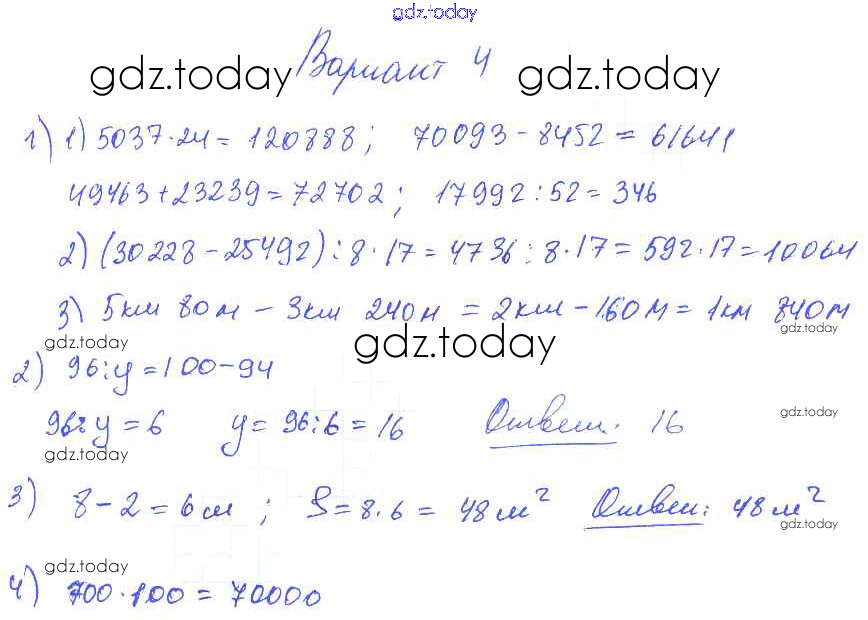 gdz.today
Вариант 4
gdz.today gdz.today
1) 1) 5037·24 = 120888; 70093 - 8452 = 61641
49463 + 23239 = 72702; 17992 : 52 = 346
2) (30228 - 25492) : 8 · 17 = 4736 : 8 · 17 = 592 · 17 = 10064
3) 5км 80м - 3км 240м = 2км - 160м = 1км 840м
gdz.today gdz.today gdz.today
2) 96 : y = 100 - 94
96 : y = 6 y = 96 : 6 = 16 Ответ: 16
gdz.today gdz.today
3) 8 - 2 = 6 см ; S = 8 · 6 = 48 м² Ответ: 48 м²
gdz.today gdz.today
4) 700 · 100 = 70000